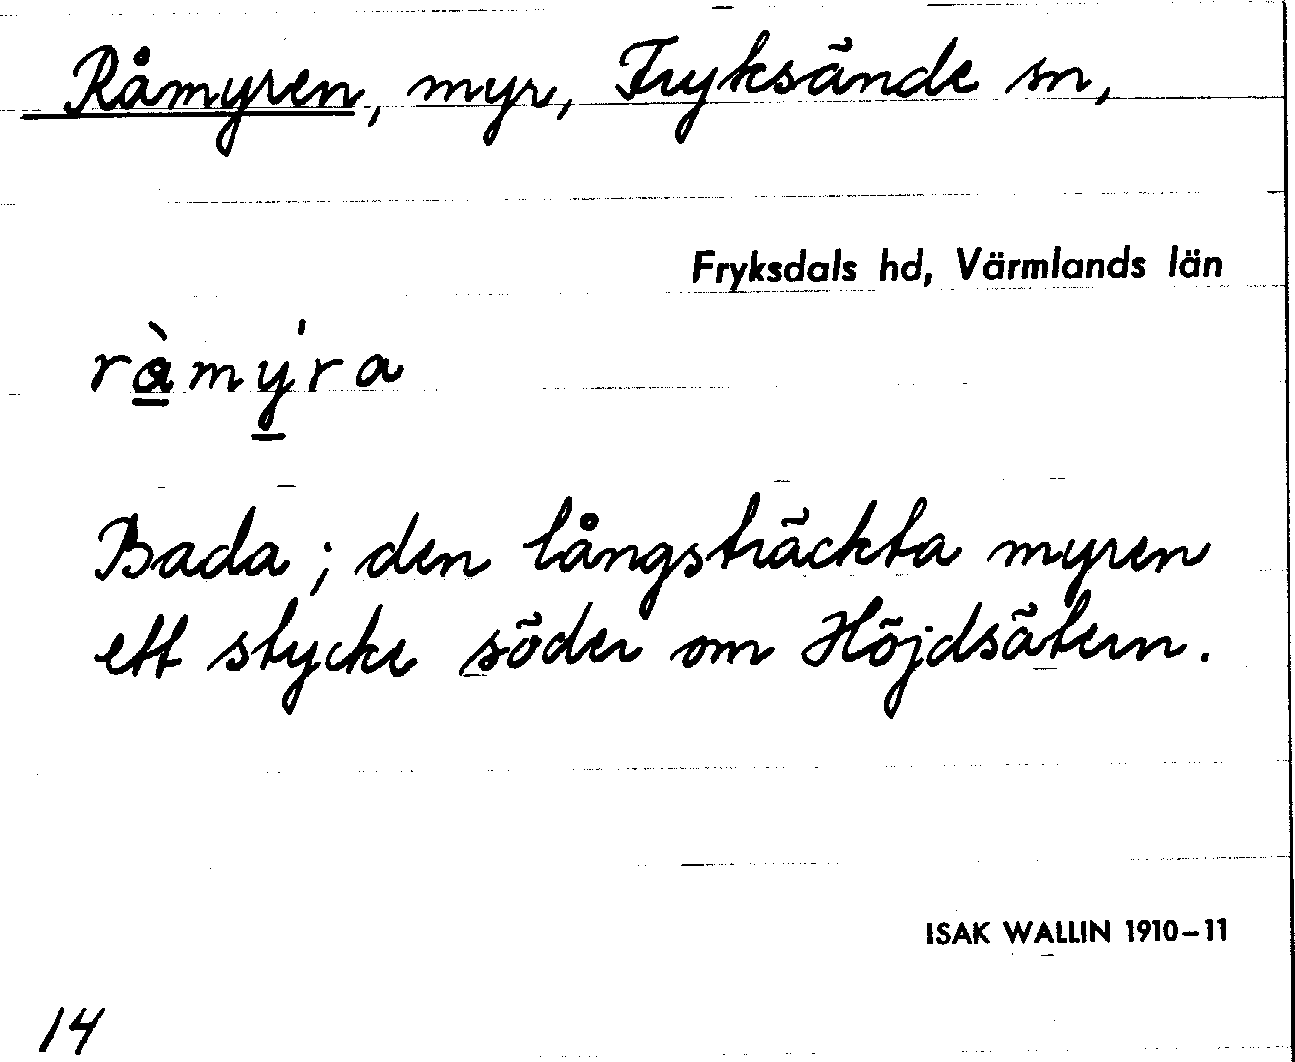 Råmyren, myr, Fryksände sn,
Fryksdals hd, Värmlands län
ràmy'ra
Bada; den långsträckta myren
ett stycke söder om Höjdsätern.
ISAK WALLIN 1910–11
14